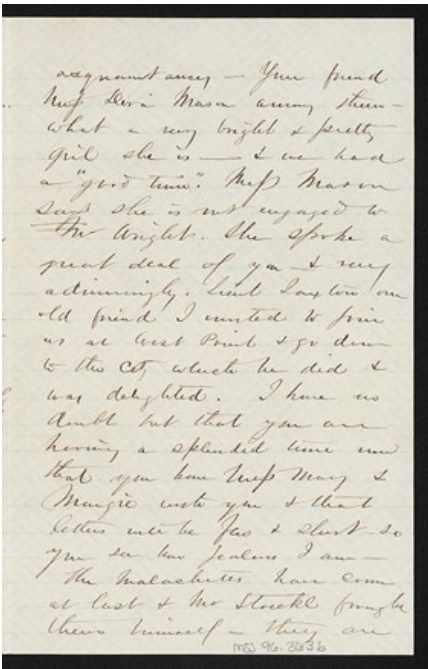 acquaintances — Your friend
Miss Dora Mason among them —
what a very bright & pretty
girl she is — & we had
a "good time". Miss Mason
says she is not engaged to
Mr Wright. She spoke a
great deal of you & very
admiringly. Lieut Saxton our
old friend I invited to join
us at West Point & go down
to the City which he did &
was delighted. I have no
doubt but that you are
having a splendid time now
that you have Miss Mary &
Margie with you & that
letters will be few & short - so
you see how jealous I am —
The Malachites have come
at last & Mr Stoeckl brought
them himself — they are
MSS 96.3636